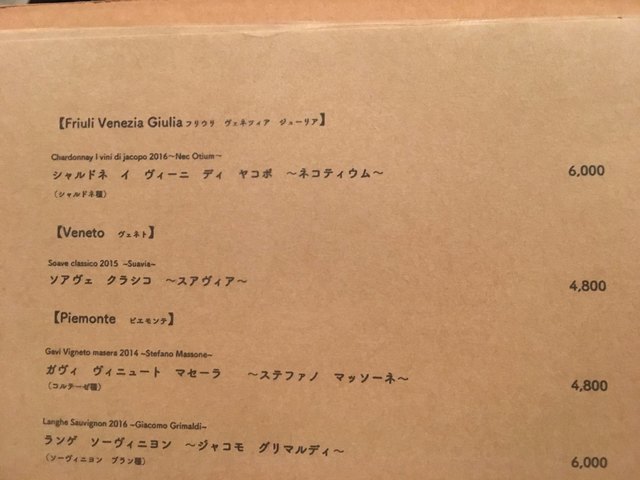 【Friuli Venezia Giulia フリウリ ヴェネツィア ジューリア】
Chardonnay I vini di jacopo 2016〜Nec Otium〜
シャルドネ イ ヴィーニ ディ ヤコポ 〜ネコティウム〜 6,000
(シャルドネ種)
【Veneto ヴェネト】
Soave classico 2015 ~Suavia~
ソアヴェ クラシコ 〜スアヴィア〜 4,800
【Piemonte ピエモンテ】
Gavi Vigneto masera 2014 ~Stefano Massone~
ガヴィ ヴィニュート マセーラ 〜ステファノ マッソーネ〜 4,800
(コルテーゼ種)
Langhe Sauvignon 2016 ~Giacomo Grimaldi~
ランゲ ソーヴィニヨン 〜ジャコモ グリマルディ〜 6,000
(ソーヴィニヨン ブラン種)